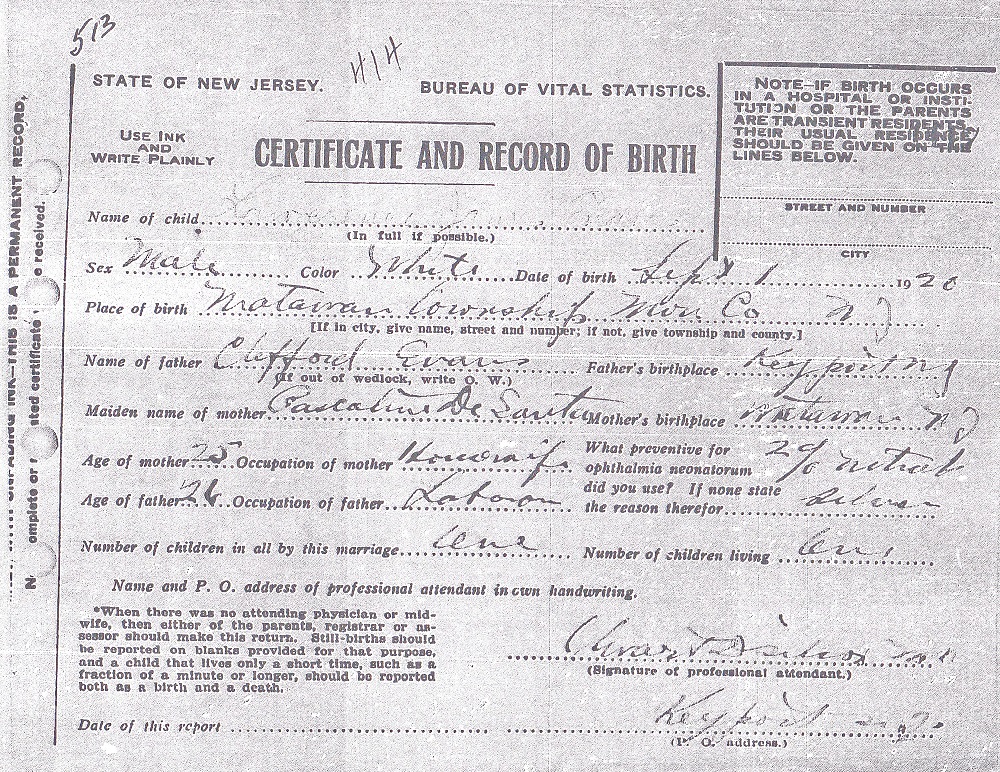 513
414
STATE OF NEW JERSEY. BUREAU OF VITAL STATISTICS.
USE INK
AND
WRITE PLAINLY
CERTIFICATE AND RECORD OF BIRTH
NOTE—IF BIRTH OCCURS
IN A HOSPITAL OR INSTI-
TUTION OR THE PARENTS
ARE TRANSIENT RESIDENTS,
THEIR USUAL RESIDENCE
SHOULD BE GIVEN ON THE
LINES BELOW.
STREET AND NUMBER
CITY
Name of child
(In full if possible.)
Sex Male Color White Date of birth Sept 1 1920
Place of birth Matawan Township Mon Co N J
[If in city, give name, street and number; if not, give township and county.]
Name of father Clifford Evans Father's birthplace Keyport N J
(If out of wedlock, write O. W.)
Maiden name of mother De Santis Mother's birthplace Matawan N J
Age of mother 25 Occupation of mother Housewife What preventive for
ophthalmia neonatorum 2%
did you use? If none state
the reason therefor silver
Age of father 26 Occupation of father
Number of children in all by this marriage one Number of children living one
Name and P. O. address of professional attendant in own handwriting.
*When there was no attending physician or mid-
wife, then either of the parents, registrar or as-
sessor should make this return. Still-births should
be reported on blanks provided for that purpose,
and a child that lives only a short time, such as a
fraction of a minute or longer, should be reported
both as a birth and a death.
(Signature of professional attendant.)
Date of this report Keyport
(P. O. address.)
INK—THIS IS A PERMANENT RECORD,
omplete or
ted certificate
e received.